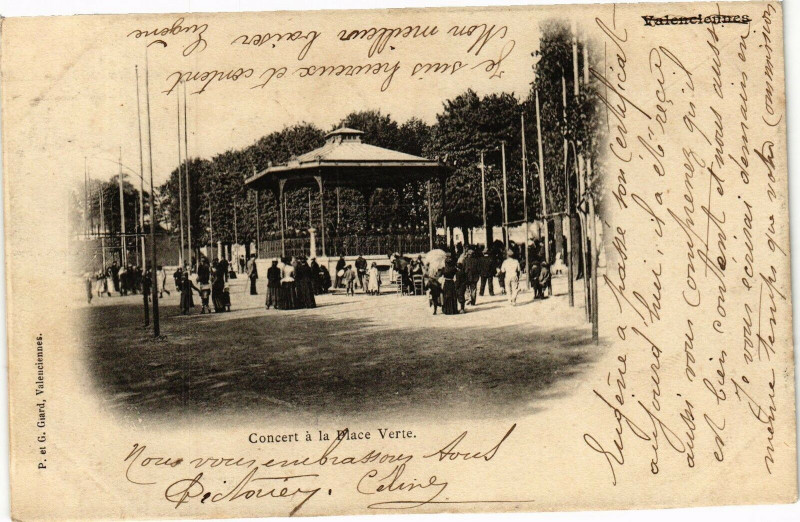 Valenciennes
Eugène a passé son Certificat
aujourd'hui, il a été reçu
aussi vous comprenez qu'il
est bien content et nous aussi
Je vous écrirai demain en
même temps que votre Commission
Je suis heureux et content
Mon meilleur baiser Eugène
P. et G. Giard, Valenciennes.
Concert à la Place Verte.
Nous vous embrassons tous
Céline